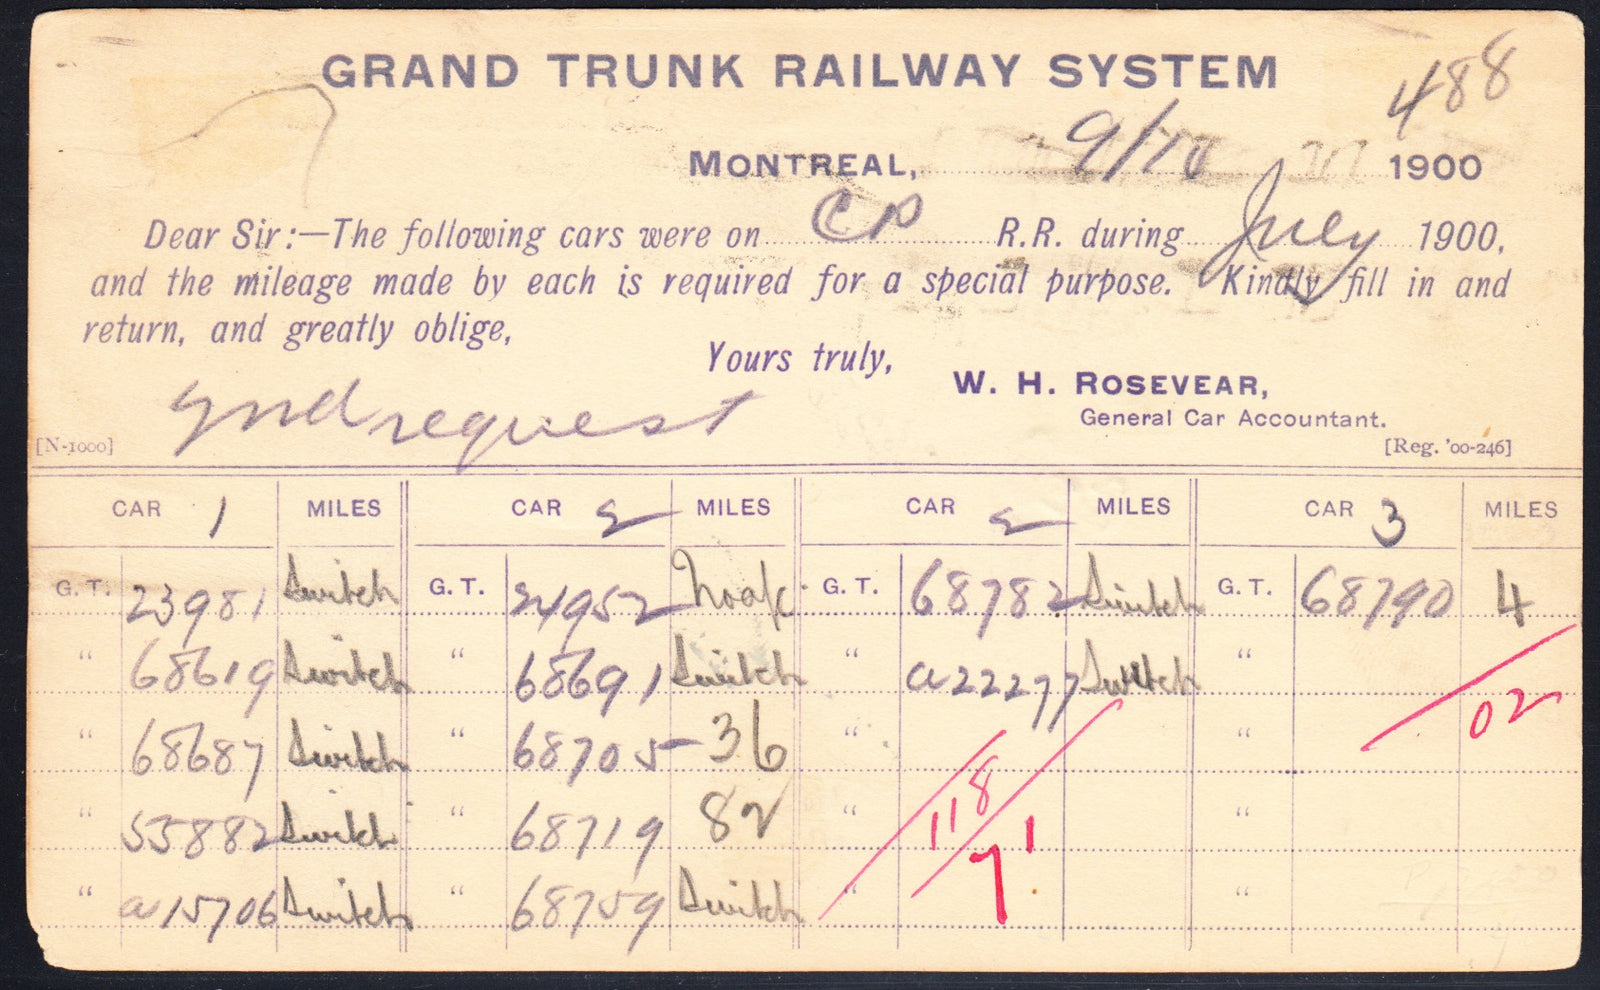 GRAND TRUNK RAILWAY SYSTEM
488
MONTREAL, 9/10 1900
Dear Sir:—The following cars were on CP R.R. during July 1900,
and the mileage made by each is required for a special purpose. Kindly fill in and
return, and greatly oblige,
Yours truly,
W. H. ROSEVEAR,
General Car Accountant.
2nd request
[N-1000] [Reg. '00-246]
CAR 1 MILES CAR 2 MILES CAR 2 MILES CAR 3 MILES
G. T. 23981 Switch G. T. 24952 G. T. 68782 Switch G. T. 68790 4
" 68619 Switch " 68691 Switch " a22277 Switch "
" 68687 Switch " 68705 36 " " 02
" 53882 Switch " 68719 82 " 118 "
" a15706 Switch " 68759 Switch " 71 "